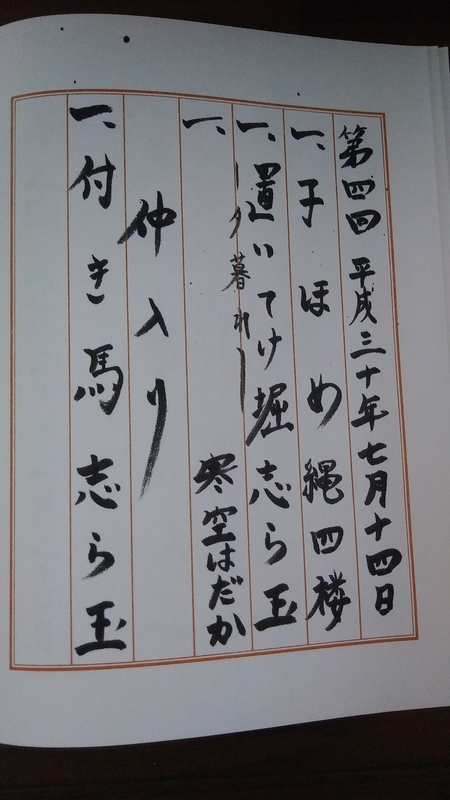 第四回 平成三十年七月十四日
一、子ほめ 縄四楼
一、置いてけ堀 志ら玉
―夕暮れ―
一、 寒空はだか
仲入り
一、付き馬 志ら玉